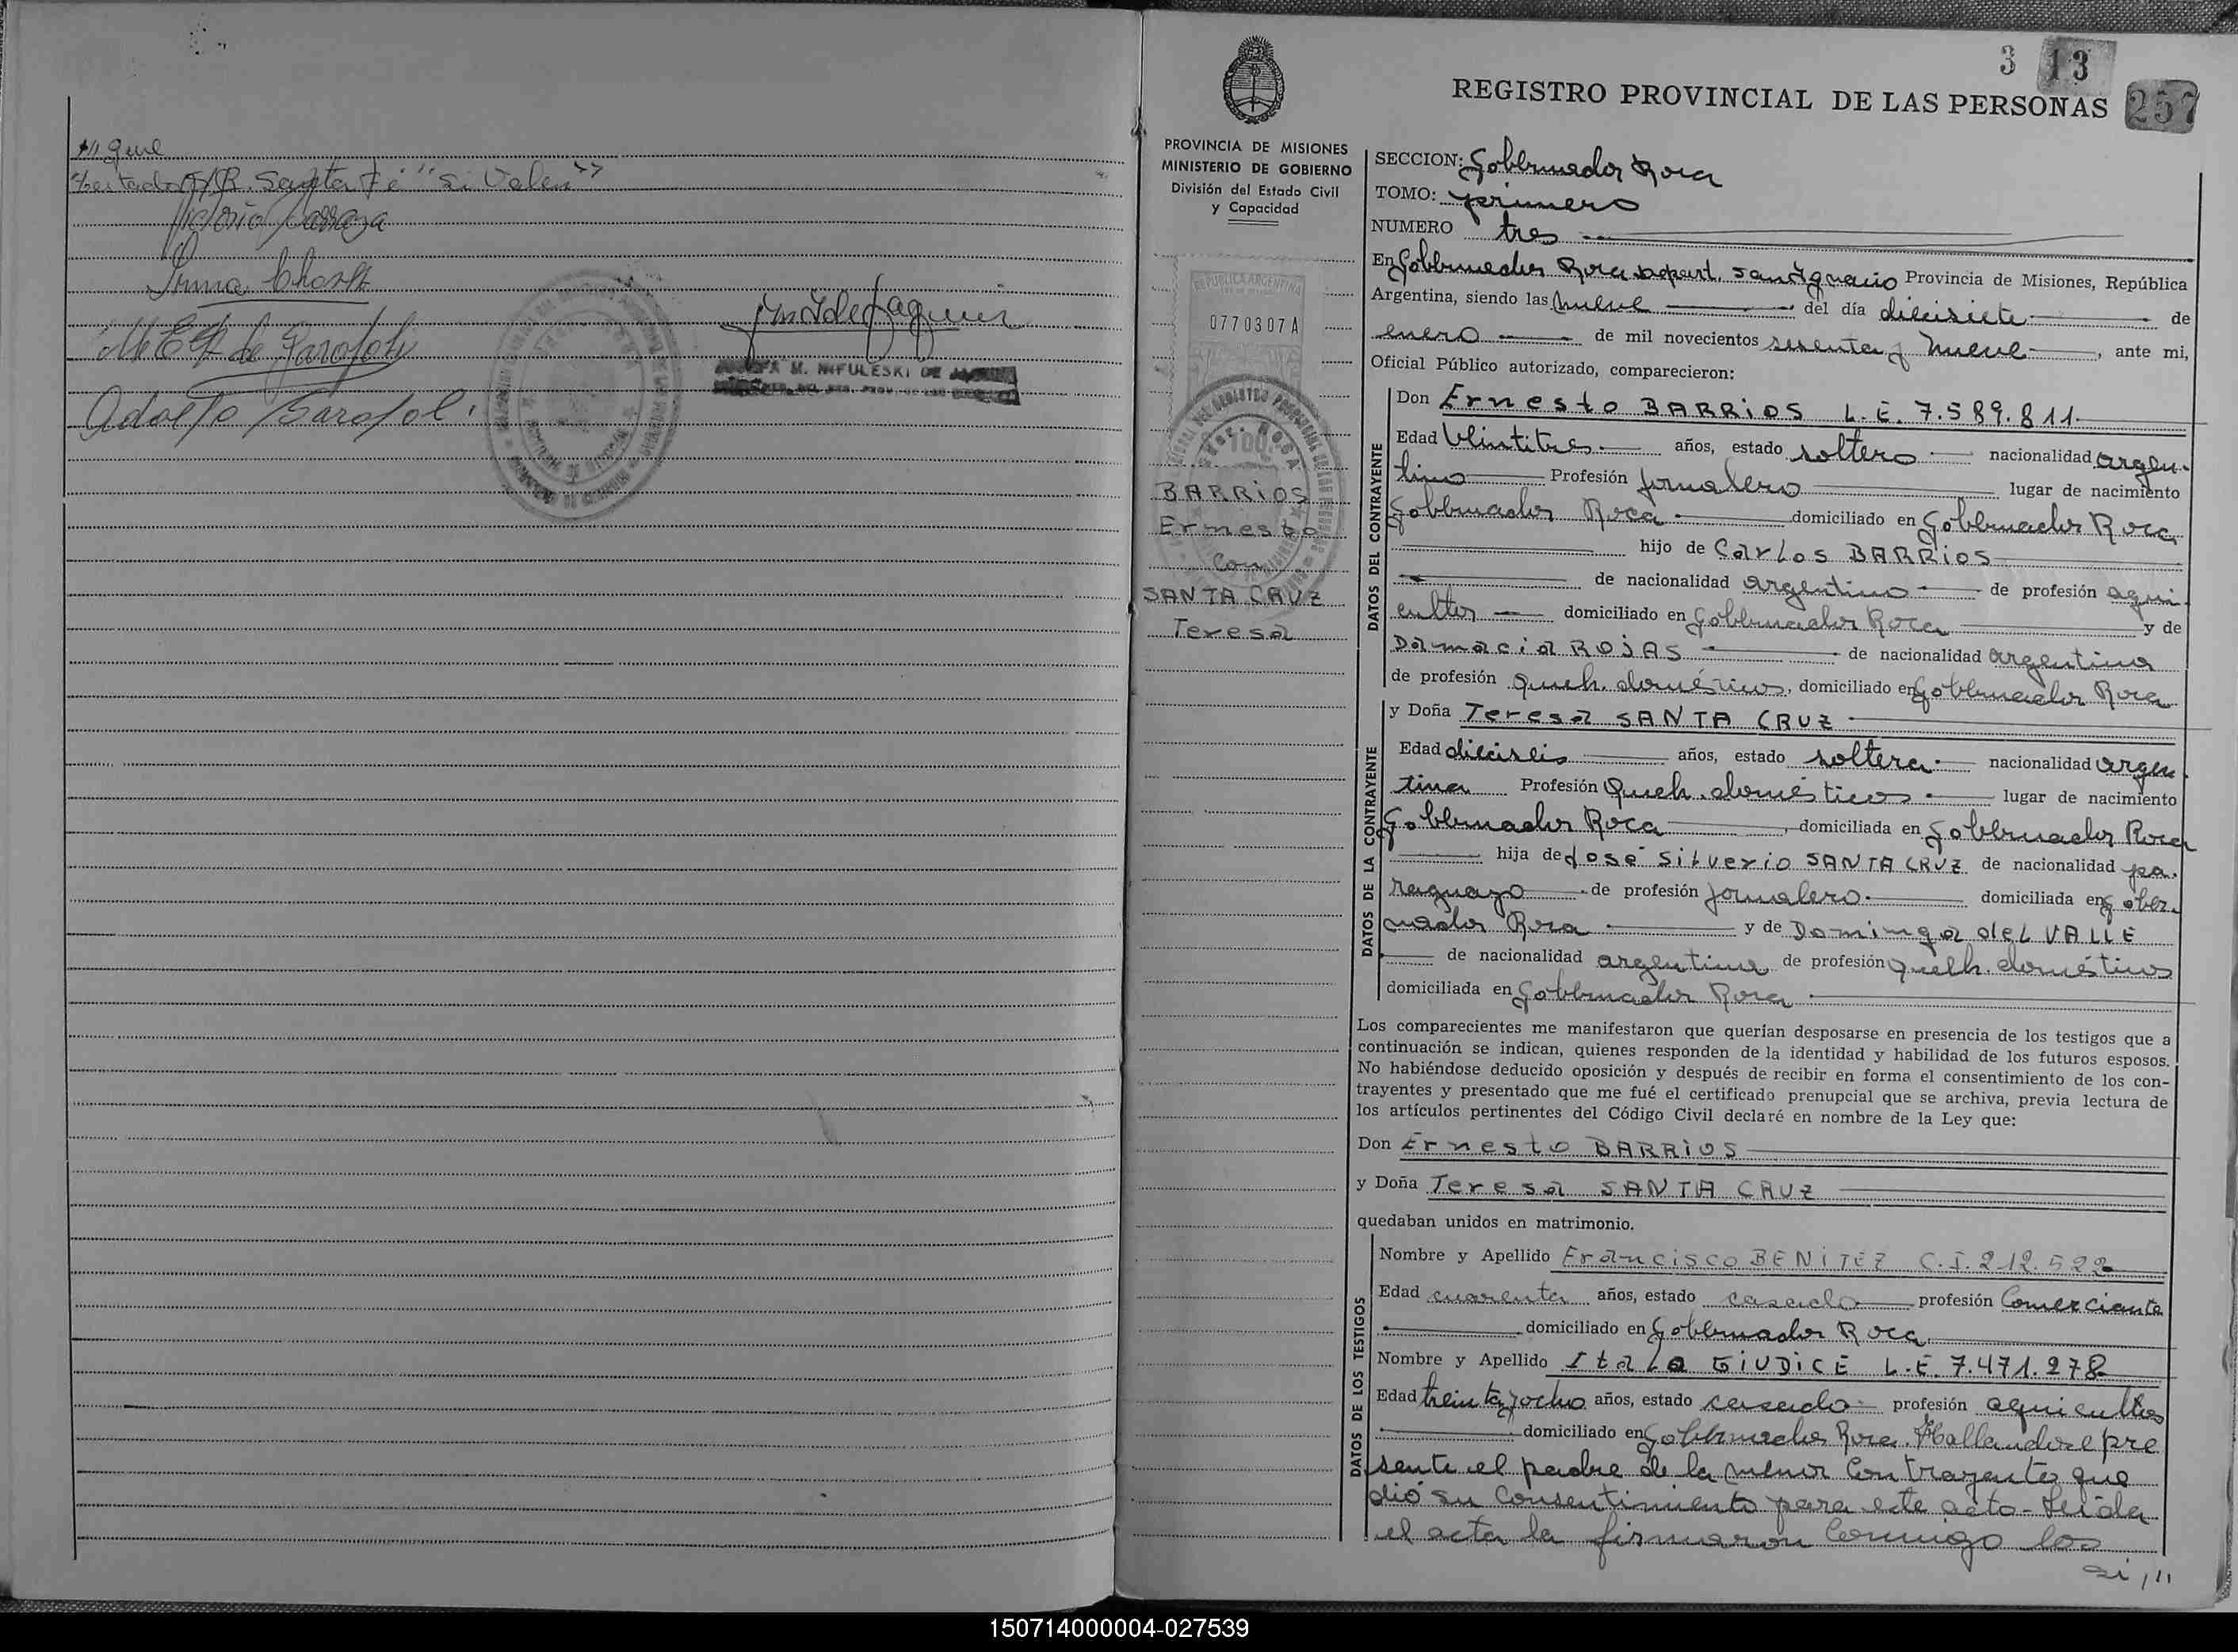 /// que
testado S/R. Santa Fé "si Valen"
Victorio Carraza
Irma
M E G de Garofoli
Adolfo Garofoli
JOSEFA M. NIFULESKI DE
3 13
257
REGISTRO PROVINCIAL DE LAS PERSONAS
PROVINCIA DE MISIONES
MINISTERIO DE GOBIERNO
División del Estado Civil
y Capacidad
REPUBLICA ARGENTINA
0770307 A
BARRIOS
Ernesto
Con
SANTA CRUZ
Teresa
SECCION: Gobernador Roca
TOMO: primero
NUMERO tres
En Gobernador Roca depart. San Ignacio Provincia de Misiones, República
Argentina, siendo las nueve del día diecisiete de
enero de mil novecientos sesenta y nueve, ante mi,
Oficial Público autorizado, comparecieron:
DATOS DEL CONTRAYENTE
Don Ernesto BARRIOS L.E. 7.589.811
Edad veintitres años, estado soltero nacionalidad argen-
tino Profesión Jornalero lugar de nacimiento
Gobernador Roca domiciliado en Gobernador Roca
hijo de Carlos BARRIOS
de nacionalidad argentino de profesión agri-
cultor domiciliado en Gobernador Roca y de
Damacia ROJAS de nacionalidad argentina
de profesión Queh. domésticos, domiciliado en Gobernador Roca
DATOS DE LA CONTRAYENTE
y Doña Teresa SANTA CRUZ
Edad dieciseis años, estado soltera nacionalidad argen-
tina Profesión Queh. domésticos lugar de nacimiento
Gobernador Roca, domiciliada en Gobernador Roca
hija de José Silverio SANTA CRUZ de nacionalidad pa-
raguayo de profesión Jornalero domiciliada en Gober-
nador Roca y de Dominga del VALLE
de nacionalidad argentina de profesión Queh. domésticos
domiciliada en Gobernador Roca
Los comparecientes me manifestaron que querían desposarse en presencia de los testigos que a
continuación se indican, quienes responden de la identidad y habilidad de los futuros esposos.
No habiéndose deducido oposición y después de recibir en forma el consentimiento de los con-
trayentes y presentado que me fué el certificado prenupcial que se archiva, previa lectura de
los artículos pertinentes del Código Civil declaré en nombre de la Ley que:
Don Ernesto BARRIOS
y Doña Teresa SANTA CRUZ
quedaban unidos en matrimonio.
DATOS DE LOS TESTIGOS
Nombre y Apellido Francisco BENITEZ C.I. 212.522
Edad cuarenta años, estado casado profesión Comerciante
domiciliado en Gobernador Roca
Nombre y Apellido Italo GIUDICE L.E. 7.471.278
Edad treinta y ocho años, estado casado profesión agricultor
domiciliado en Gobernador Roca. Hallandose pre
sente el padre de la menor Contrayente que
dió su Consentimiento para este acto - Leida
el acta la firmaron Conmigo los
si, //
150714000004-027539